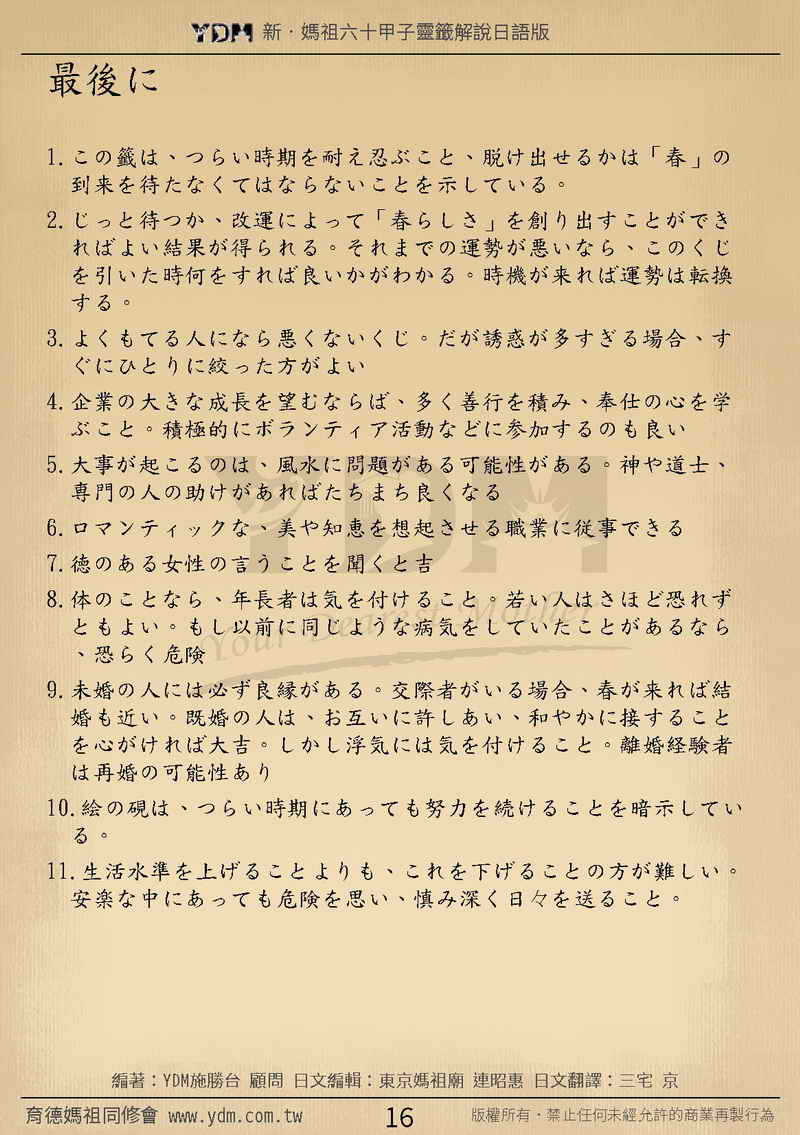 YDM 新・媽祖六十甲子靈籤解說日語版
最後に
1. この籤は、つらい時期を耐え忍ぶこと、脱け出せるかは「春」の
到来を待たなくてはならないことを示している。
2. じっと待つか、改運によって「春らしさ」を創り出すことができ
ればよい結果が得られる。それまでの運勢が悪いなら、このくじ
を引いた時何をすれば良いかがわかる。時機が来れば運勢は転換
する。
3. よくもてる人になら悪くないくじ。だが誘惑が多すぎる場合、す
ぐにひとりに絞った方がよい
4. 企業の大きな成長を望むならば、多く善行を積み、奉仕の心を学
ぶこと。積極的にボランティア活動などに参加するのも良い
5. 大事が起こるのは、風水に問題がある可能性がある。神や道士、
専門の人の助けがあればたちまち良くなる
6. ロマンティックな、美や知恵を想起させる職業に従事できる
7. 徳のある女性の言うことを聞くと吉
8. 体のことなら、年長者は気を付けること。若い人はさほど恐れず
ともよい。もし以前に同じような病気をしていたことがあるなら
、恐らく危険
9. 未婚の人には必ず良縁がある。交際者がいる場合、春が来れば結
婚も近い。既婚の人は、お互いに許しあい、和やかに接すること
を心がければ大吉。しかし浮気には気を付けること。離婚経験者
は再婚の可能性あり
10. 絵の硯は、つらい時期にあっても努力を続けることを暗示してい
る。
11. 生活水準を上げることよりも、これを下げることの方が難しい。
安楽な中にあっても危険を思い、慎み深く日々を送ること。
YDM
Your Dearest Mother
編著：YDM施勝台 顧問 日文編輯：東京媽祖廟 連昭惠 日文翻譯：三宅 京
育德媽祖同修會 www.ydm.com.tw 16 版權所有・禁止任何未經允許的商業再製行為